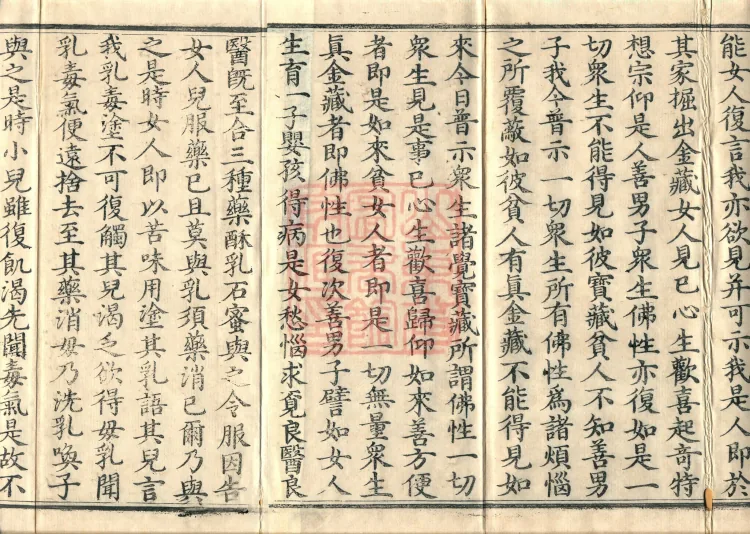 能女人復言我亦欲見并可示我是人即於
其家掘出金藏女人見已心生歡喜起奇特
想宗仰是人善男子衆生佛性亦復如是一
切衆生不能得見如彼寶藏貧人不知善男
子我今普示一切衆生所有佛性爲諸煩惱
之所覆蔽如彼貧人有真金藏不能得見如
來今日普示衆生諸覺寶藏所謂佛性一切
衆生見是事已心生歡喜歸仰如來善方便
者即是如來貧女人者即是一切無量衆生
眞金藏者即佛性也復次善男子譬如女人
生育一子嬰孩得病是女愁惱求覓良醫良
醫旣至合三種藥酥乳石蜜與之令服因告
女人兒服藥已且莫與乳須藥消已爾乃與
之是時女人即以苦味用塗其乳語其兒言
我乳毒塗不可復觸其兒渴乏欲得母乳聞
乳毒氣便遠捨去至其藥消母乃洗乳喚子
與之是時小兒雖復飢渴先聞毒氣是故不